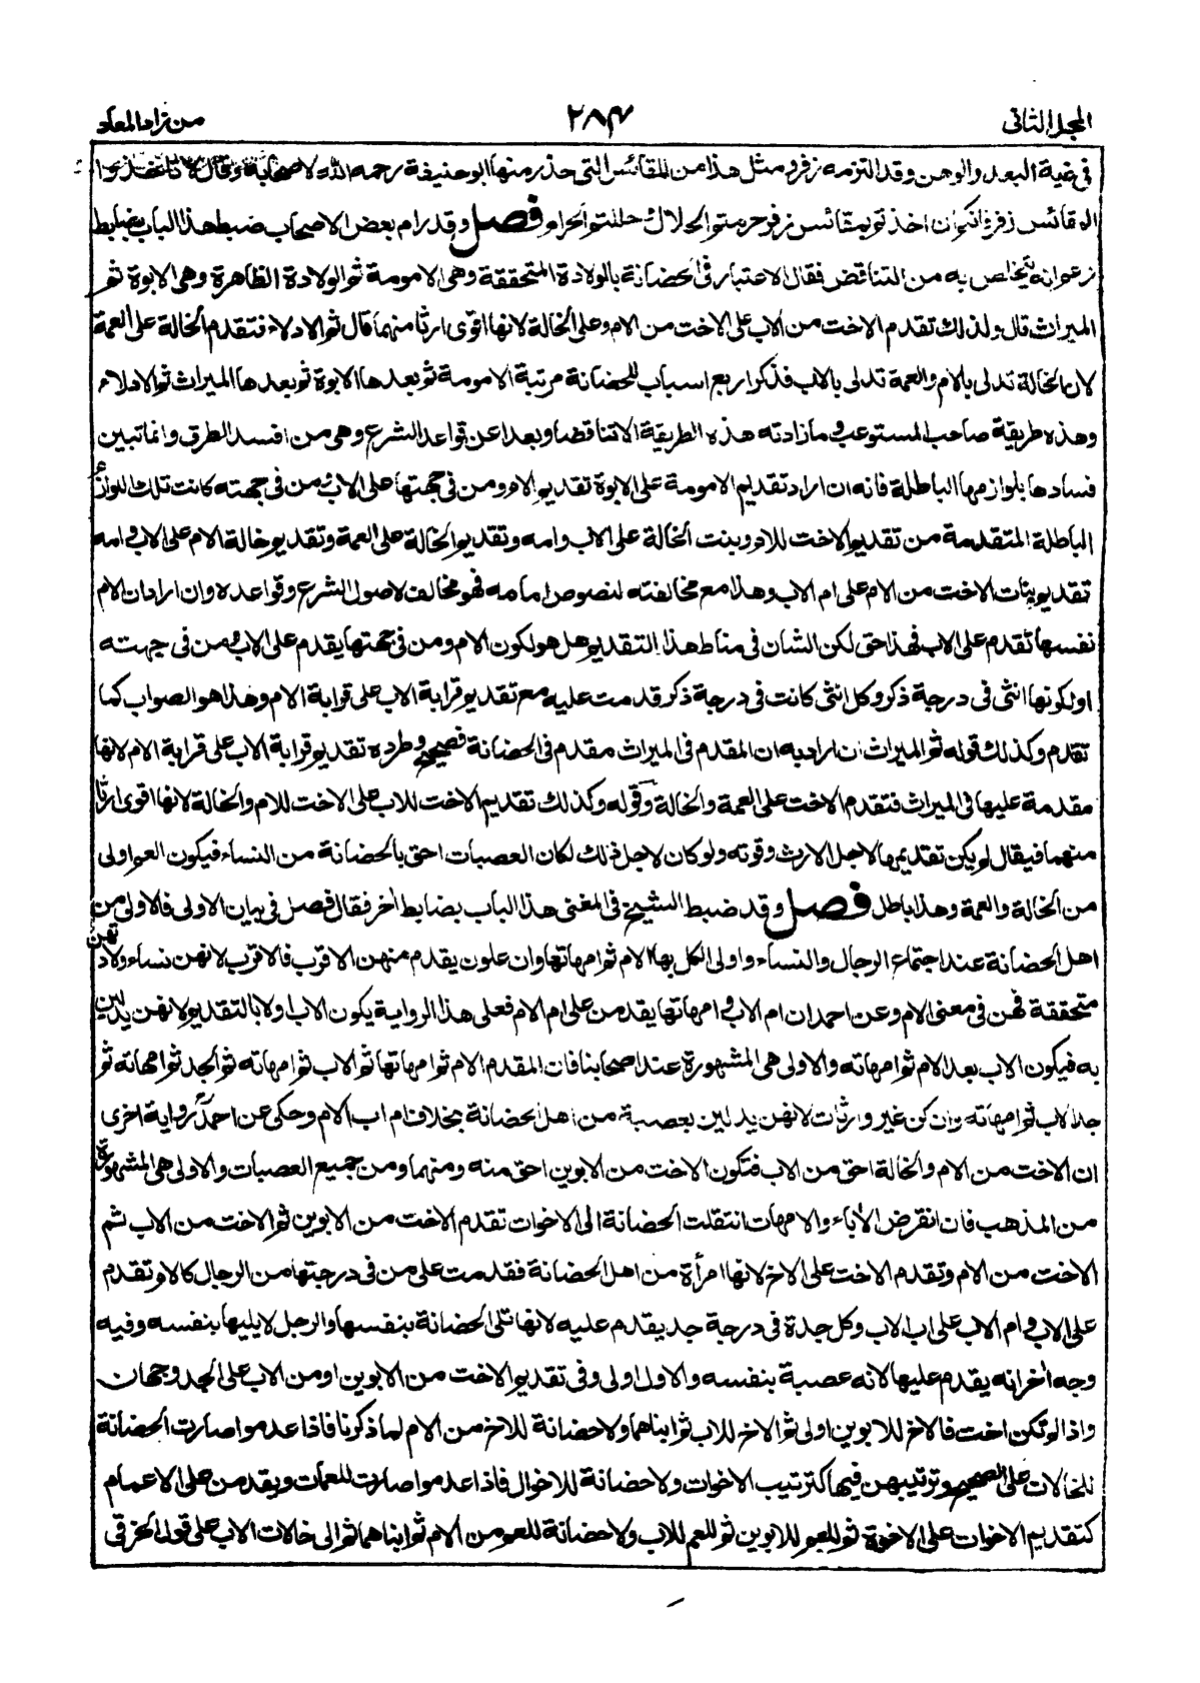 المجلد الثانى ٢٨٤ من زاد المعاد
فى غية البعد والوهن وقد التزمه زفر ومثل هذا من المقائس التى حذر منها ابو حنيفة رحمه الله لاصحابه وقال لا تاخذوا
المقائس زفر فانكم ان اخذتم بمقائس زفر حرمتم الحلال وحللتم الحرام فصل وقد رام بعض الاصحاب ضبط هذا الباب بضابط
زعم انه يتخلص به من التناقض فقال الاعتبار فى الحضانة بالولادة المتحققة وهى الامومة ثم الولادة الظاهرة وهى الابوة ثم
الميراث قال ولذلك تقدم الاخت من الاب على الاخت من الام وعلى الخالة لانها اقوى ارثا منهما قال ثم الادلاء فتقدم الخالة على العمة
لان الخالة تدلى بالام والعمة تدلى بالاب فذكر اربع اسباب للحضانة مرتبة الامومة ثم بعدها الابوة ثم بعدها الميراث ثم الادلاء
وهذه طريقة صاحب المستوعب وما زادته هذه الطريقة الا تناقضا وبعدا عن قواعد الشرع وهى من افسد الطرق وانما تبين
فسادها بلوازمها الباطلة فانه ان اراد تقديم الامومة على الابوة تقديم الام ومن فى جهتها على الاب ومن فى جهته كانت تلك اللوازم
الباطلة المتقدمة من تقديم الاخت للام وبنت الخالة على الاب وامه وتقديم الخالة على العمة وتقديم خالة الام على الاب وامه
تقديم بنات الاخت من الام على ام الاب وهذا مع مخالفته لنصوص امامه فهو مخالف لاصول الشرع وقواعده وان اراد ان الام
نفسها تقدم على الاب فهذا حق لكن الشان فى مناط هذا التقديم هل هو لكون الام ومن فى جهتها يقدم على الاب ومن فى جهته
او لكونها انثى فى درجة ذكر وكل انثى كانت فى درجة ذكر قدمت عليه مع تقديم قرابة الاب على قرابة الام وهذا هو الصواب كما
تقدم وكذلك قوله ثم الميراث ان اراد به ان المقدم فى الميراث مقدم فى الحضانة فصحيح وطرده تقديم قرابة الاب على قرابة الام لانها
مقدمة عليها فى الميراث فتقدم الاخت على العمة والخالة وقوله وكذلك تقديم الاخت للاب على الاخت للام والخالة لانها اقوى ارثا
منهما فيقال لم يكن تقديمها لاجل الارث وقوته ولو كان لاجل ذلك لكان العصبات احق بالحضانة من النساء فيكون العم اولى
من الخالة والعمة وهذا باطل فصل وقد ضبط الشيخ فى المغنى هذا الباب بضابط اخر فقال فصل فى بيان الاولى فالاولى من
اهل الحضانة عند اجتماع الرجال والنساء واولى الكل بها الام ثم امهاتها وان علون يقدم منهن الاقرب فالاقرب لانهن نساء ولادتهن
متحققة فهن فى معنى الام وعن احمد ان ام الاب وامهاتها يقدمن على ام الام فعلى هذا الرواية يكون الاب اولا بالتقديم لانهن يدلين
به فيكون الاب بعد الام ثم امهاته والاولى هى المشهورة عند اصحابنا فان المقدم الام ثم امهاتها ثم الاب ثم امهاته ثم الجد ثم امهاته ثم
جد الاب ثم امهاته وان كن غير وارثات لانهن يدلين بعصبة من اهل الحضانة بخلاف ام اب الام وحكى عن احمد رواية اخرى
ان الاخت من الام والخالة احق من الاب فتكون الاخت من الابوين احق منه ومنهما ومن جميع العصبات والاولى هى المشهورة
من المذهب فان انقرض الآباء والامهات انتقلت الحضانة الى الاخوات تقدم الاخت من الابوين ثم الاخت من الاب ثم
الاخت من الام وتقدم الاخت على الاخ لانها امرأة من اهل الحضانة فقدمت على من فى درجتها من الرجال كالام تقدم
على الاب وام الاب على اب الاب وكل جدة فى درجة جد يقدم عليه لانها تلى الحضانة بنفسها والرجل لا يليها بنفسه وفيه
وجه اخر انه يقدم عليها لانه عصبة بنفسه والاول اولى وفى تقديم الاخت من الابوين او من الاب على الجد وجهان
واذا لم تكن اخت فالاخ للابوين اولى ثم الاخ للاب ثم ابناهما ولا حضانة للاخ من الام لما ذكرنا فاذا عدموا صارت الحضانة
للخالات على الصحيح وترتيبهن فيها كترتيب الاخوات ولا حضانة للاخوال فاذا عدموا صارت للعمات ويقدمن على الاعمام
كتقديم الاخوات على الاخوة ثم للعم للابوين ثم للعم للاب ولا حضانة للعم من الام ثم ابناهما ثم الى خالات الاب على قول الخرقى